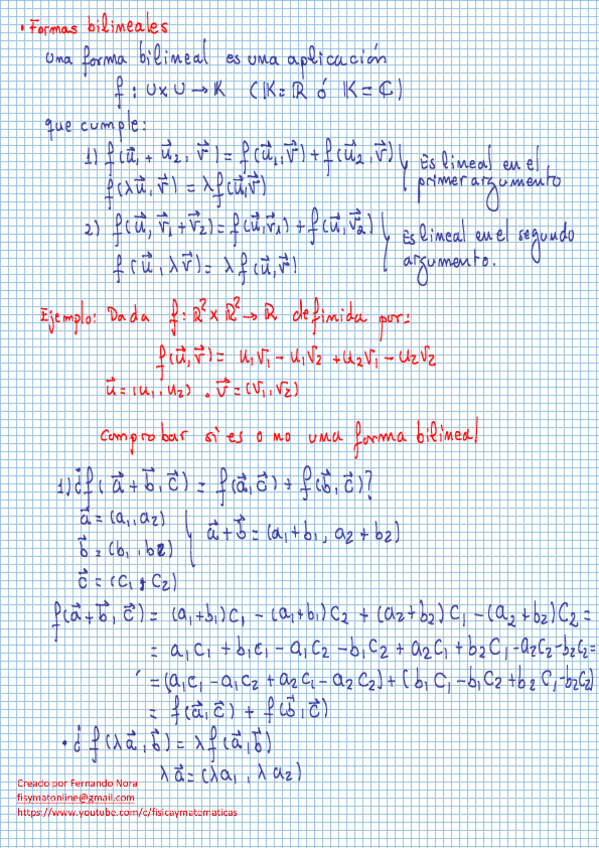 • Formas bilineales
Una forma bilineal es una aplicación
f : U x U → K (K = ℝ ó K = ℂ)
que cumple:
1) f(u⃗₁ + u⃗₂, v⃗) = f(u⃗₁, v⃗) + f(u⃗₂, v⃗) } Es lineal en el
f(λu⃗, v⃗) = λf(u⃗, v⃗) primer argumento
2) f(u⃗, v⃗₁+v⃗₂) = f(u⃗, v⃗₁) + f(u⃗, v⃗₂) } Es lineal en el segundo
f(u⃗, λv⃗) = λf(u⃗, v⃗) argumento.
Ejemplo: Dada f : ℝ² x ℝ² → ℝ definida por:
f(u⃗, v⃗) = u₁v₁ - u₁v₂ + u₂v₁ - u₂v₂
u⃗ = (u₁, u₂) . v⃗ = (v₁, v₂)
Comprobar si es o no una forma bilineal
1) ¿f(a⃗ + b⃗, c⃗) = f(a⃗, c⃗) + f(b⃗, c⃗)?
a⃗ = (a₁, a₂)
b⃗ = (b₁, b₂) } a⃗ + b⃗ = (a₁+b₁, a₂+b₂)
c⃗ = (c₁, c₂)
f(a⃗+b⃗, c⃗) = (a₁+b₁)c₁ - (a₁+b₁)c₂ + (a₂+b₂)c₁ - (a₂+b₂)c₂ =
= a₁c₁ + b₁c₁ - a₁c₂ - b₁c₂ + a₂c₁ + b₂c₁ - a₂c₂ - b₂c₂ =
= (a₁c₁ - a₁c₂ + a₂c₁ - a₂c₂) + (b₁c₁ - b₁c₂ + b₂c₁ - b₂c₂)
= f(a⃗, c⃗) + f(b⃗, c⃗)
• ¿f(λa⃗, b⃗) = λf(a⃗, b⃗)
λa⃗ = (λa₁, λa₂)
Creado por Fernando Nora
fisymatonline@gmail.com
https://www.youtube.com/c/fisicaymatematicas